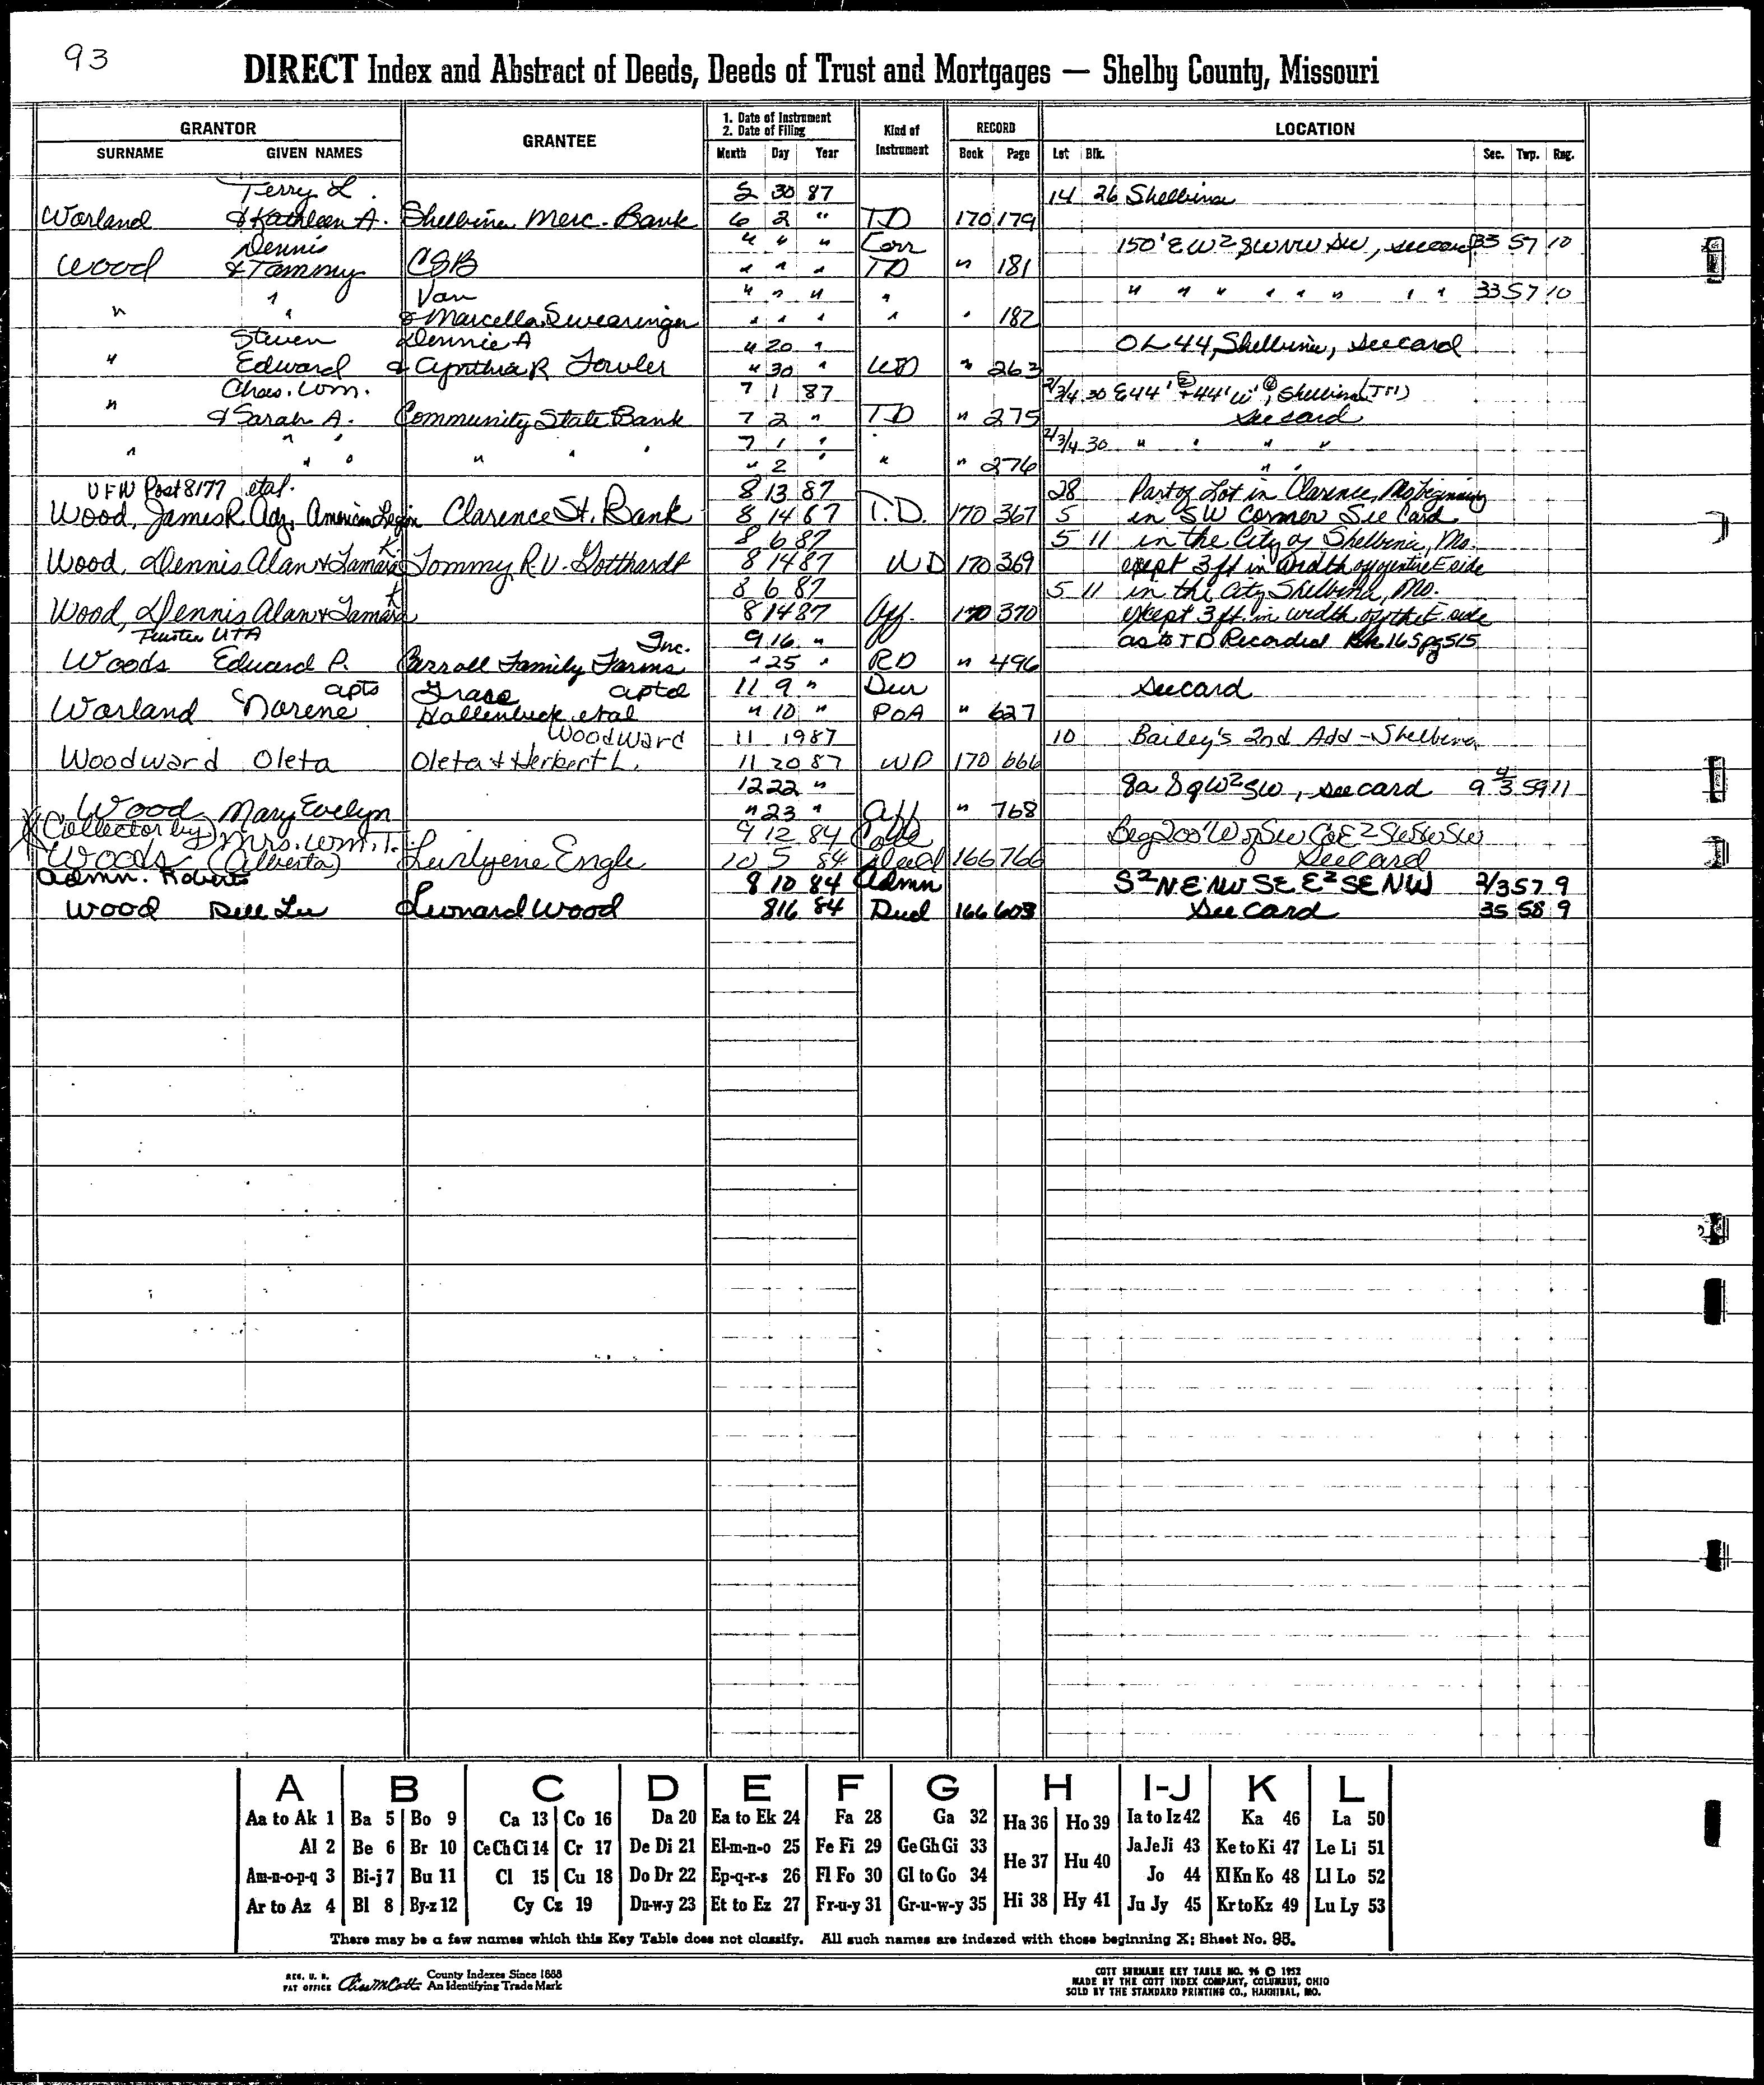 93
DIRECT Index and Abstract of Deeds, Deeds of Trust and Mortgages — Shelby County, Missouri
GRANTOR GRANTEE 1. Date of Instrument 2. Date of Filing Kind of Instrument RECORD LOCATION
SURNAME GIVEN NAMES Month Day Year Book Page Lot Blk. Sec. Twp. Rng.
Terry L. 5 30 87 14 26 Shelbina
Worland & Kathleen A. Shelbina Merc. Bank 6 2 " TD 170 179
Dennis " " " Corr 150' E W2 SW NW SW, see card 33 57 10
Wood & Tammy CSB " " " TD " 181
" " Van " " " " " " " " " " " " 33 57 10
& Marcella Swearingen " " " " " 182
Steven Dennie A " 20 " OL 44, Shelbina, see card
" Edward & Cynthia R Fowler " 30 " WD " 263
Chas. Wm. 7 1 87 2/3/4 30 E44' + 44' W, Shelbina
" & Sarah A. Community State Bank 7 2 " TD " 275 see card
" " " " " " 7 1 " " 2/3/4 30 " " " "
" 2 " " 276 " "
VFW Post 8177 etal. 8 13 87 28 Part of Lot in Clarence, Mo beginning
Wood, James R. Adj. American Legion Clarence St. Bank 8 14 87 T.D. 170 367 5 in SW Corner See Card
8 6 87 5 11 in the City of Shelbina, Mo.
Wood, Dennis Alan & Tamara K Tommy R.V. Gotthardt 8 14 87 WD 170 369 except 3 ft in width off entire E side
8 6 87 5 11 in the City Shelbina, Mo.
Wood, Dennis Alan & Tamara K 8 14 87 Aff. 170 370 except 3 ft. in width off the E side
Trustee UTA Inc. 9 16 " as to TD Recorded Bk 165 pg 515
Woods Edward P. Carroll Family Farms " 25 " RD " 496
apts Grace aptd 11 9 " Dur see card
Worland Norene Hollenbeck etal " 10 " POA " 627
Woodward 11 19 87 10 Bailey's 2nd Add - Shelbina
Woodward Oleta Oleta & Herbert L. 11 20 87 WD 170 666
12 22 " 8a S 9 W2 SW, see card 9 4/3 59 11
Wood Mary Evelyn " 23 " Aff " 768
(Collector by) Mrs. Wm. T. 9 12 84 Coll Beg 200' W of SW Co E2 SW SW SW
Woods (Alberta) Lurlyene Engle 10 5 84 Deed 166 766 See Card
Admn. Roberts 8 10 84 Admn S2 NE NW SE E2 SE NW 2/3 57 9
Wood Dell Lee Leonard Wood 8 16 84 Deed 166 603 See Card 35 58 9
A B C D E F G H I-J K L
Aa to Ak 1 Ba 5 Bo 9 Ca 13 Co 16 Da 20 Ea to Ek 24 Fa 28 Ga 32 Ha 36 Ho 39 Ia to Iz 42 Ka 46 La 50
Al 2 Be 6 Br 10 Ce Ch Ci 14 Cr 17 De Di 21 El-m-n-o 25 Fe Fi 29 Ge Gh Gi 33 He 37 Hu 40 Ja Je Ji 43 Ke to Ki 47 Le Li 51
Am-n-o-p-q 3 Bi-j 7 Bu 11 Cl 15 Cu 18 Do Dr 22 Ep-q-r-s 26 Fl Fo 30 Gl to Go 34 Jo 44 Kl Kn Ko 48 Ll Lo 52
Ar to Az 4 Bl 8 By-z 12 Cy Cz 19 Du-w-y 23 Et to Ez 27 Fr-u-y 31 Gr-u-w-y 35 Hi 38 Hy 41 Ju Jy 45 Kr to Kz 49 Lu Ly 53
There may be a few names which this Key Table does not classify. All such names are indexed with those beginning X; Sheet No. 95.
REG. U. S. PAT OFFICE County Indexes Since 1888 An Identifying Trade Mark
COTT SURNAME KEY TABLE NO. 96 © 1952
MADE BY THE COTT INDEX COMPANY, COLUMBUS, OHIO
SOLD BY THE STANDARD PRINTING CO., HANNIBAL, MO.